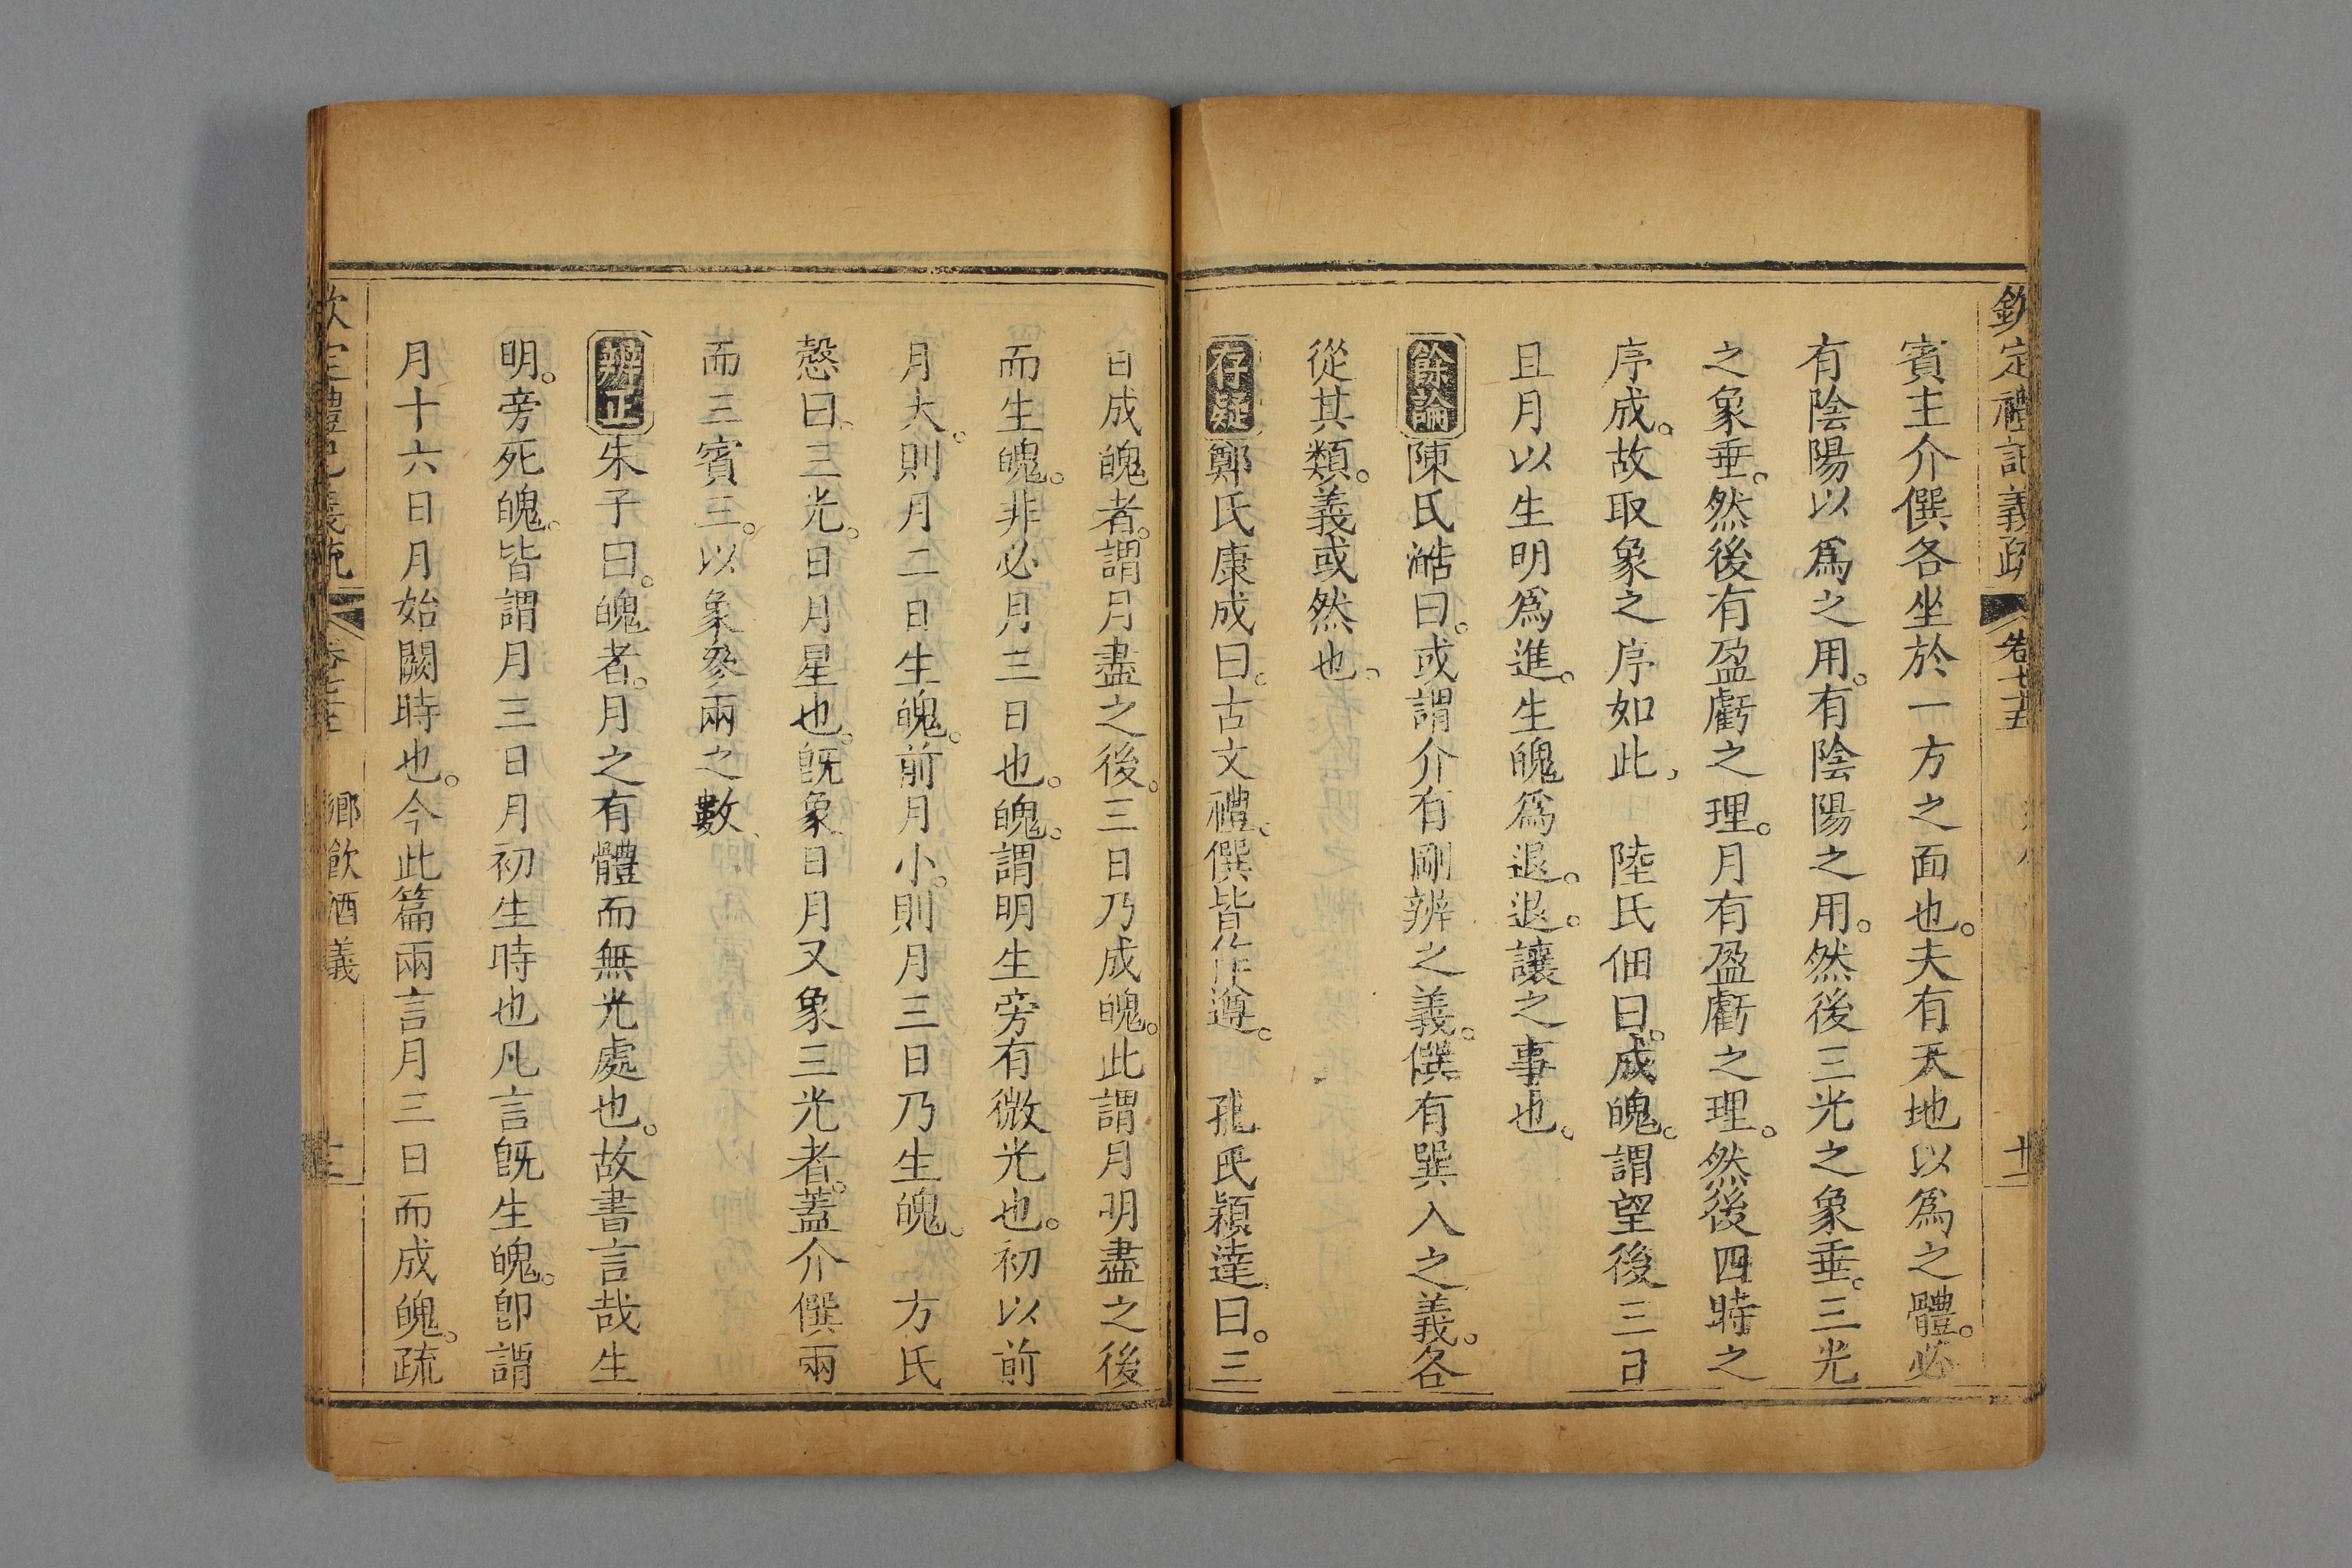 欽定禮記義疏 卷七十五 十二
賓主介僎各坐於一方之面也。夫有天地以爲之體。必
有陰陽以爲之用。有陰陽之用。然後三光之象垂。三光
之象垂。然後有盈虧之理。月有盈虧之理。然後四時之
序成。故取象之序如此。 陸氏佃曰。成魄。謂望後三日
且月以生明爲進。生魄爲退。退。讓之事也。
餘論 陳氏澔曰。或謂介有剛辨之義。僎有巽入之義。各
從其類。義或然也。
存疑 鄭氏康成曰。古文禮。僎皆作遵。 孔氏穎達曰。三
日成魄者。謂月盡之後。三日乃成魄。此謂月明盡之後
而生魄。非必月三日也。魄。謂明生旁有微光也。初以前
月大。則月二日生魄。前月小。則月三日乃生魄。 方氏
慤曰。三光。日月星也。旣象日月又象三光者。蓋介僎兩
而三賓三。以象參兩之數。
辨正 朱子曰。魄者。月之有體而無光處也。故書言哉生
明。旁死魄。皆謂月三日月初生時也凡言旣生魄。卽謂
月十六日月始闕時也。今此篇兩言月三日而成魄。疏
欽定禮記義疏 卷七十五 鄉飮酒義 十二